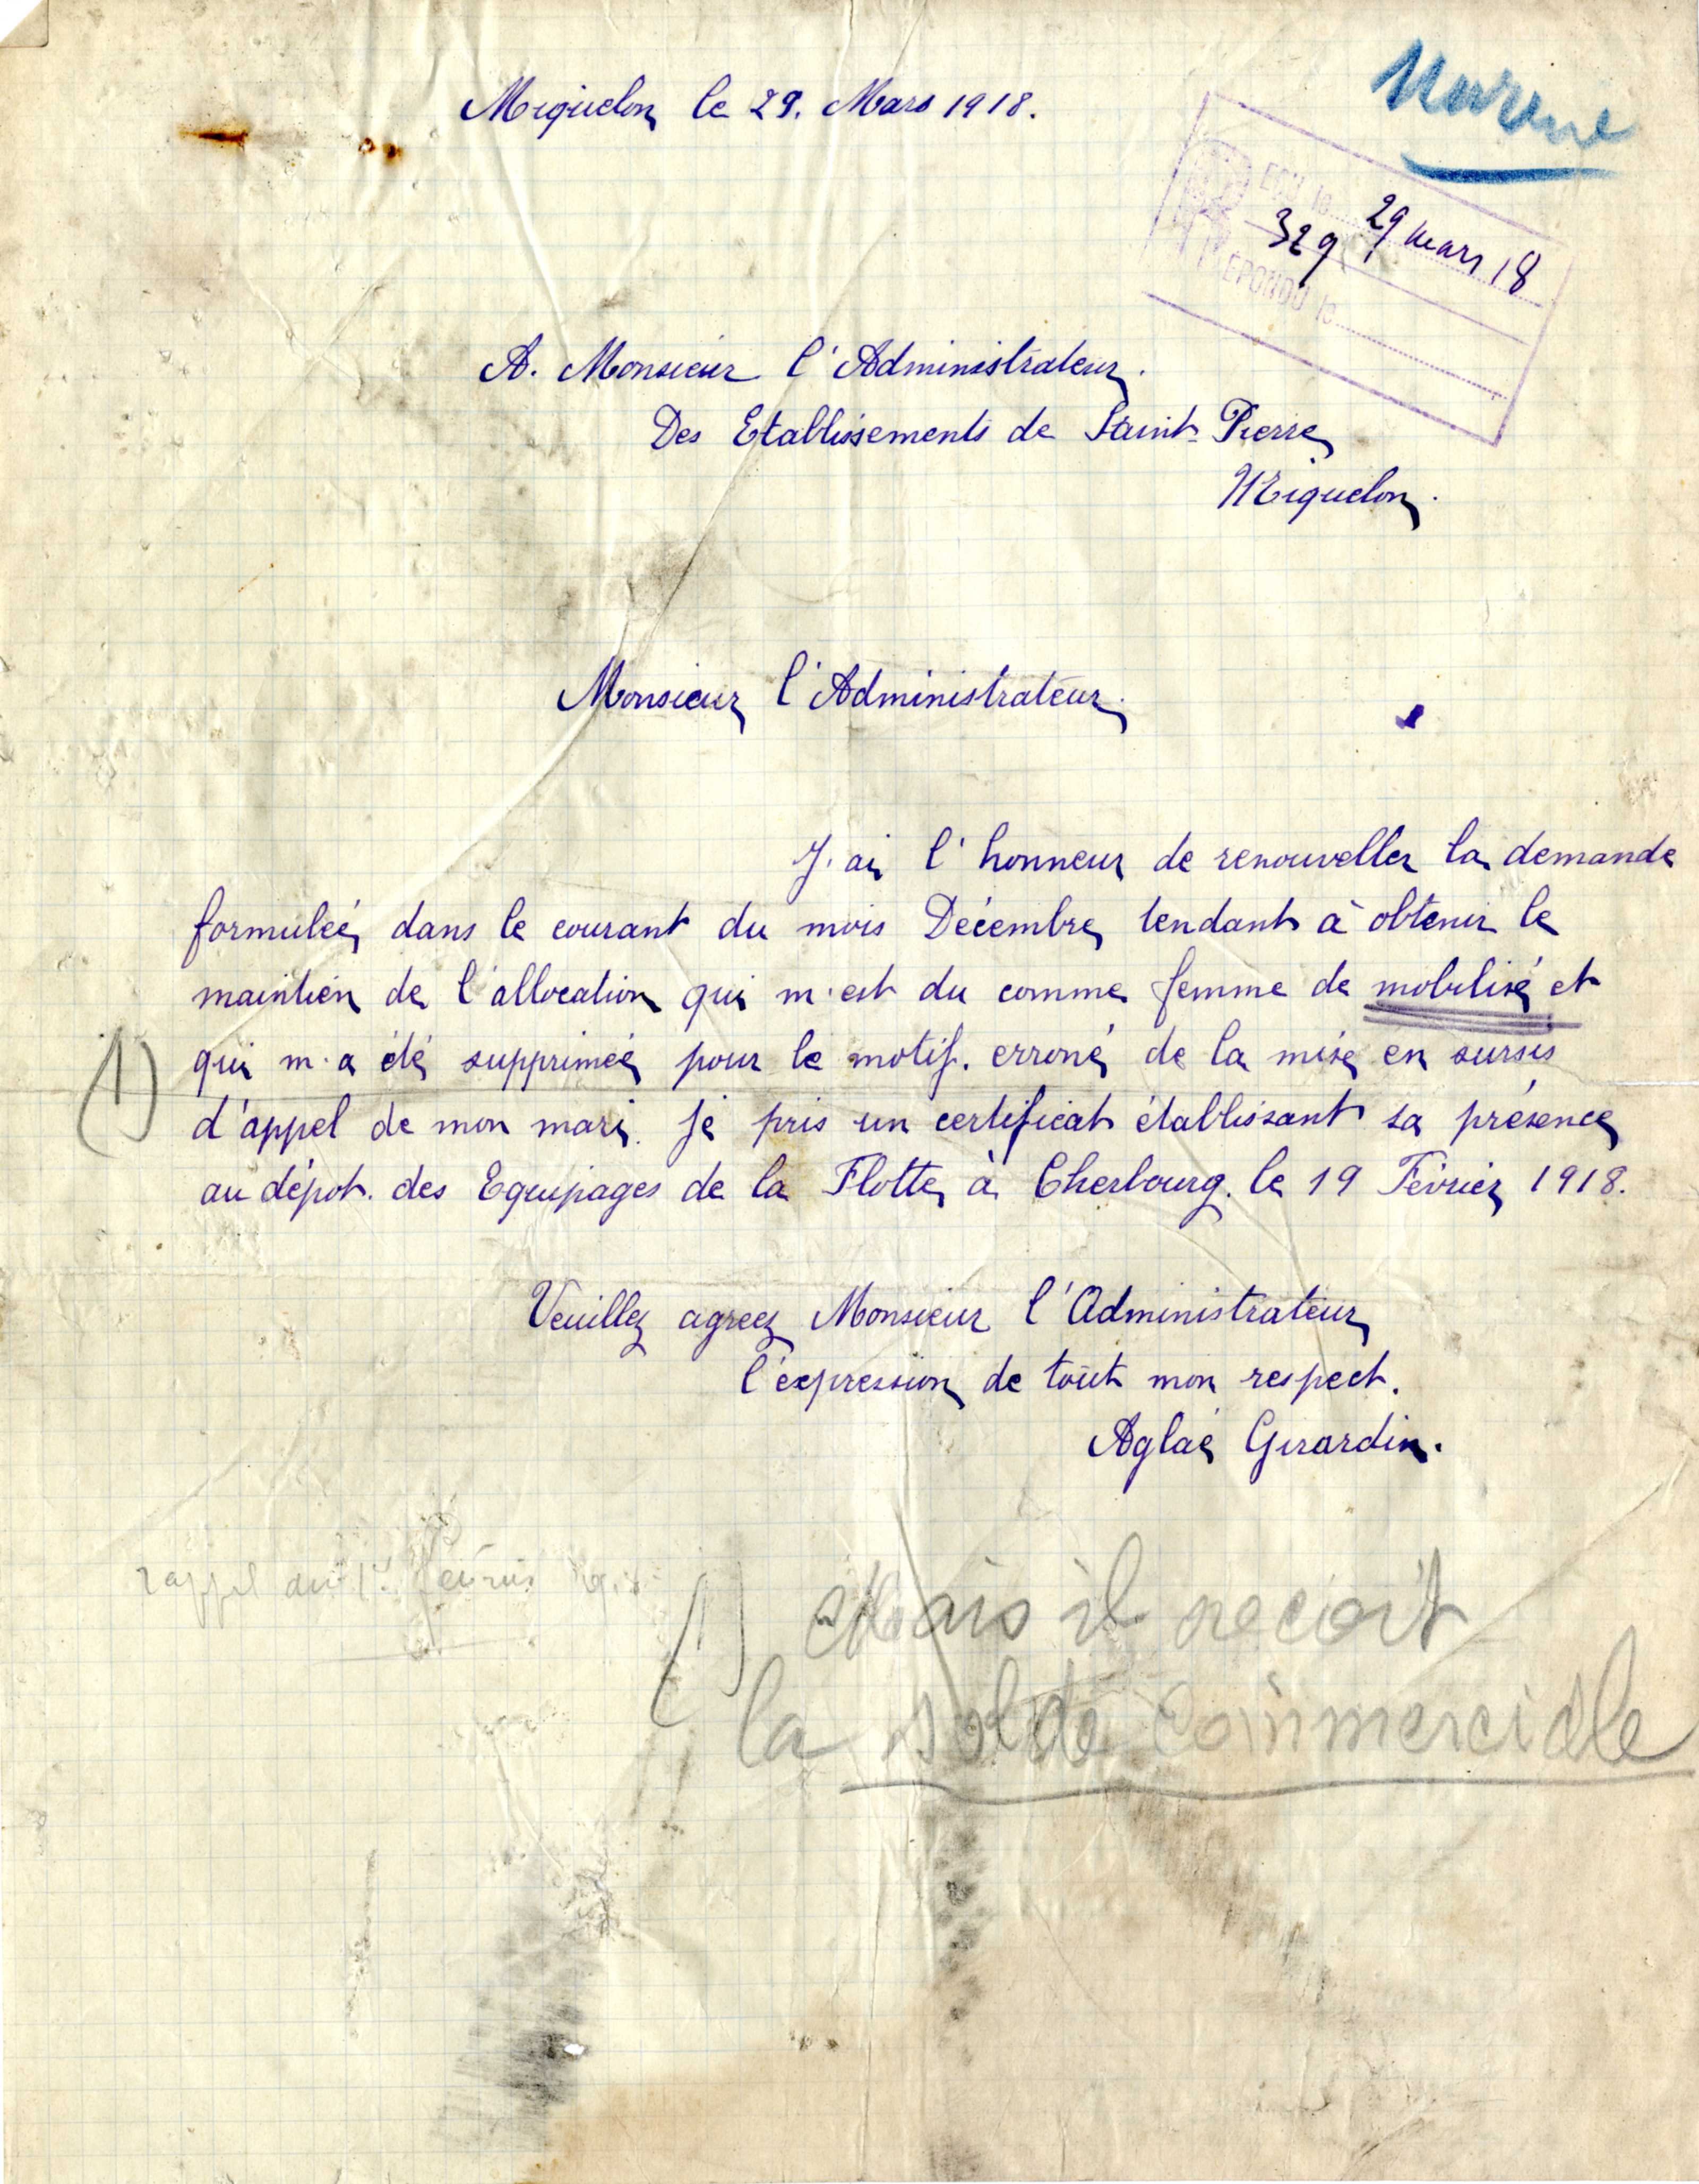 Miquelon le 29. Mars 1918.
Marine
RECU le 29 mars 18
329
REPONDU le
A. Monsieur l'Administrateur.
Des Etablissements de Saint-Pierre
Miquelon.
Monsieur l'Administrateur.
J'ai l'honneur de renouveller la demande
formuleé dans le courant du mois Décembre tendant à obtenir le
maintien de l'allocation qui m'est du comme femme de mobilisé et
(1) qui m'a été supprimeé pour le motif. erroné de la mise en sursis
d'appel de mon mari. Je pris un certificat établissant sa présence
au dépot. des Equipages de la Flotte à Cherbourg. le 19 Février 1918.
Veuillez agreez Monsieur l'Administrateur
l'expression de tout mon respect.
Aglaé Girardin.
rappel du 1er février
(1) Mais il recoit
la solde commerciale